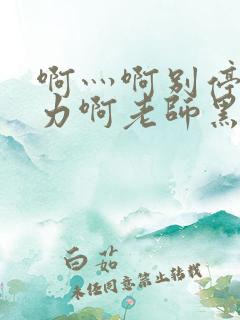 啊灬啊别停
力啊老師黑
白茹
未经同意禁止转载